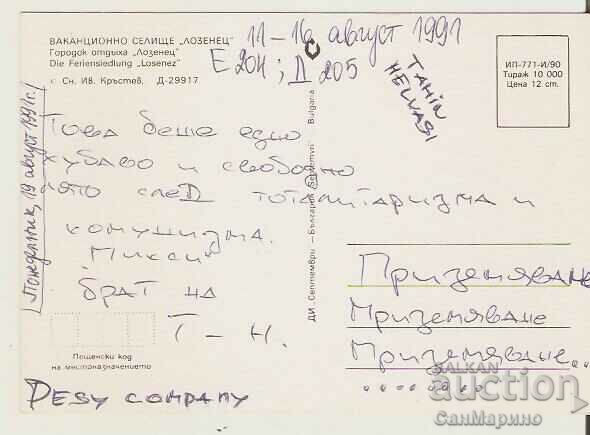 ВАКАНЦИОННО СЕЛИЩЕ „ЛОЗЕНЕЦ"
Городок отдыха „Лозенец"
Die Feriensiedlung „Losenez"
Сн. Ив. Кръстев. Д-29917
11-16 август 1991
Е 204; Д 205
TAHIN
HELVASI
ИП-771-И/90
Тираж 10 000
Цена 12 ст.
Понеделник, 19 август 1991г.
Това беше едно
хубаво и свободно
лято след тоталитаризма и
комунизма.
Микси
брат на
Т-Н.
ДИ „Септември" – България Septemvri Bulgaria
Приземяване
Приземяване
Приземяване..
Пощенски код
на местоназначението
DESY COMPANY
BALKAN
auction
СанМарино